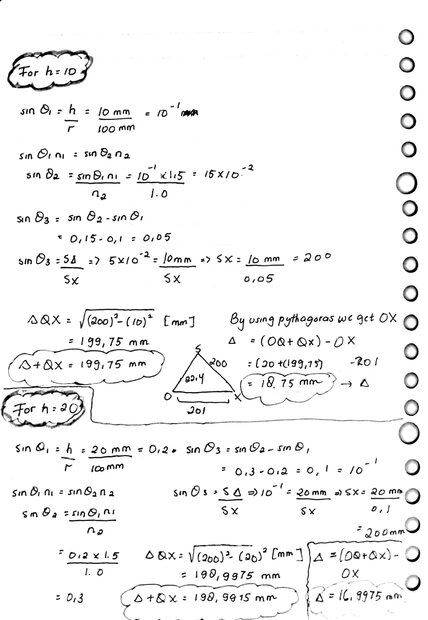 For h = 10
sin θ₁ = h/r = 10 mm/100 mm = 10⁻¹
sin θ₁ n₁ = sin θ₂ n₂
sin θ₂ = sin θ₁ n₁/n₂ = 10⁻¹ × 1.5/1.0 = 15 × 10⁻²
sin θ₃ = sin θ₂ - sin θ₁
= 0,15 - 0,1 = 0,05
sin θ₃ = SΔ/SX => 5×10⁻² = 10mm/SX => SX = 10 mm/0,05 = 200
ΔQX = √(200)² - (10)² [mm]
= 199,75 mm
Δ + QX = 199,75 mm
By using pythagoras we get OX
Δ = (OQ + QX) - OX
= (20 + (199,75) - 201
= 18,75 mm → Δ
S
200
22,4
O
X
201
For h = 20
sin θ₁ = h/r = 20 mm/100mm = 0,2 •
sin θ₃ = sin θ₂ - sin θ₁
= 0,3 - 0,2 = 0,1 = 10⁻¹
sin θ₁ n₁ = sin θ₂ n₂
sin θ₃ = SΔ/SX => 10⁻¹ = 20mm/SX => SX = 20 mm/0,1
= 200mm
sin θ₂ = sin θ₁ n₁/n₂
= 0,2 × 1.5/1.0
= 0,3
ΔQX = √(200)² - (20)² [mm]
= 198,9975 mm
Δ + QX = 198,9975 mm
Δ = (OQ + QX) -
OX
Δ = 16,9975 mm